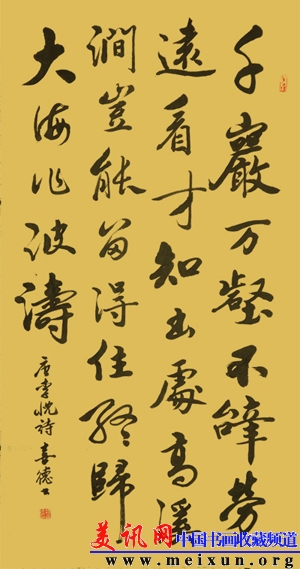 千巖万壑不辭勞
遠看才知出處高溪
澗豈能留得住終歸
大海作波濤
唐李忱詩 喜德书
美讯网 中国书画收藏频道
www.meixun.org